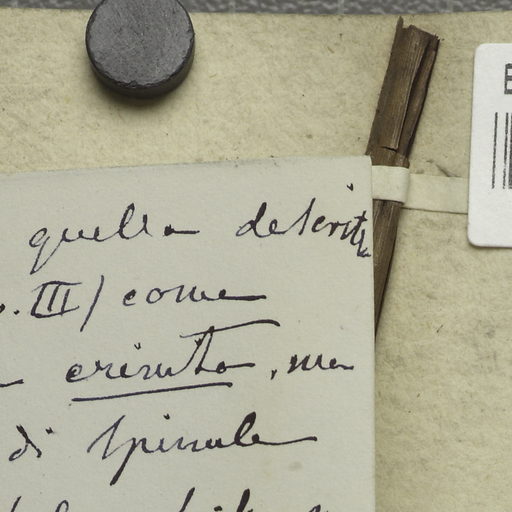 quella descritta
. III) come
crinita, ma
di spinule